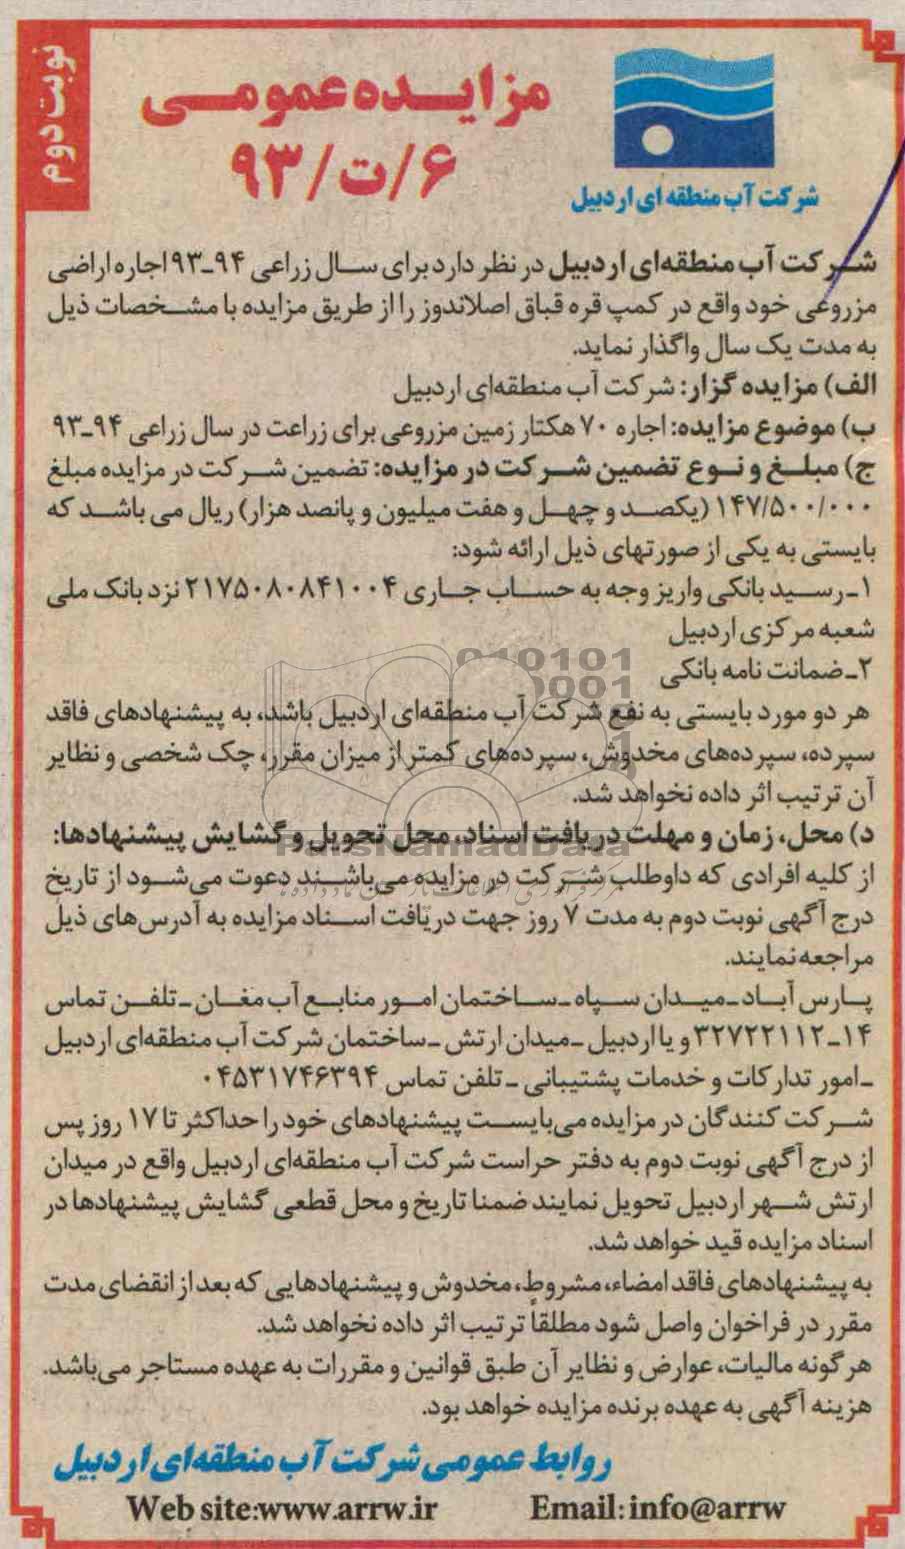 نوبت دوم
مزایده عمومی
۶/ت/۹۳
شرکت آب منطقه ای اردبیل
شرکت آب منطقه‌ای اردبیل در نظر دارد برای سال زراعی ۹۴-۹۳ اجاره اراضی
مزروعی خود واقع در کمپ قره قباق اصلاندوز را از طریق مزایده با مشخصات ذیل
به مدت یک سال واگذار نماید.
الف) مزایده گزار: شرکت آب منطقه‌ای اردبیل
ب) موضوع مزایده: اجاره ۷۰ هکتار زمین مزروعی برای زراعت در سال زراعی ۹۴-۹۳
ج) مبلغ و نوع تضمین شرکت در مزایده: تضمین شرکت در مزایده مبلغ
۱۴۷/۵۰۰/۰۰۰ (یکصد و چهل و هفت میلیون و پانصد هزار) ریال می باشد که
بایستی به یکی از صورتهای ذیل ارائه شود:
۱-رسید بانکی واریز وجه به حساب جاری ۲۱۷۵۰۸۰۸۴۱۰۰۴ نزد بانک ملی
شعبه مرکزی اردبیل
۲-ضمانت نامه بانکی
هر دو مورد بایستی به نفع شرکت آب منطقه‌ای اردبیل باشد، به پیشنهادهای فاقد
سپرده، سپرده‌های مخدوش، سپرده‌های کمتر از میزان مقرر، چک شخصی و نظایر
آن ترتیب اثر داده نخواهد شد.
د) محل، زمان و مهلت دریافت اسناد، محل تحویل و گشایش پیشنهادها:
از کلیه افرادی که داوطلب شرکت در مزایده می‌باشند دعوت می‌شود از تاریخ
درج آگهی نوبت دوم به مدت ۷ روز جهت دریافت اسناد مزایده به آدرس‌های ذیل
مراجعه نمایند.
پارس آباد-میدان سپاه-ساختمان امور منابع آب مغان-تلفن تماس
۱۴-۳۲۷۲۲۱۱۲ و یا اردبیل-میدان ارتش-ساختمان شرکت آب منطقه‌ای اردبیل
-امور تدارکات و خدمات پشتیبانی-تلفن تماس ۰۴۵۳۱۷۴۶۳۹۴
شرکت کنندگان در مزایده می‌بایست پیشنهادهای خود را حداکثر تا ۱۷ روز پس
از درج آگهی نوبت دوم به دفتر حراست شرکت آب منطقه‌ای اردبیل واقع در میدان
ارتش شهر اردبیل تحویل نمایند ضمنا تاریخ و محل قطعی گشایش پیشنهادها در
اسناد مزایده قید خواهد شد.
به پیشنهادهای فاقد امضاء، مشروط، مخدوش و پیشنهادهایی که بعد از انقضای مدت
مقرر در فراخوان واصل شود مطلقاً ترتیب اثر داده نخواهد شد.
هرگونه مالیات، عوارض و نظایر آن طبق قوانین و مقررات به عهده مستاجر می‌باشد.
هزینه آگهی به عهده برنده مزایده خواهد بود.
روابط عمومی شرکت آب منطقه‌ای اردبیل
Web site:www.arrw.ir Email:info@arrw
ParsNamadData